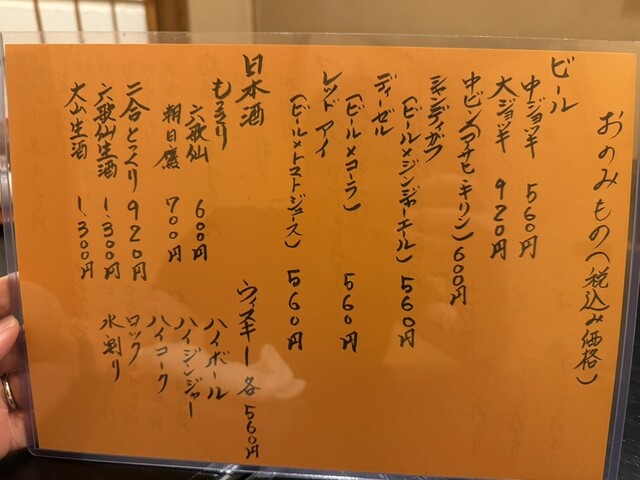 おのみもの（税込み価格）
ビール
中ジョッキ 560円
大ジョッキ 920円
中ビン（アサヒ・キリン）600円
シャンディガフ
（ビール×ジンジャーエール）560円
ディーゼル
（ビール×コーラ）560円
レッドアイ
（ビール×トマトジュース）560円
日本酒
もっきり
六歌仙 600円
朝日鷹 700円
二合とっくり 920円
六歌仙生酒 1,300円
大山生酒 1,300円
ウィスキー各560円
ハイボール
ハイジンジャー
ハイコーク
ロック
水割り